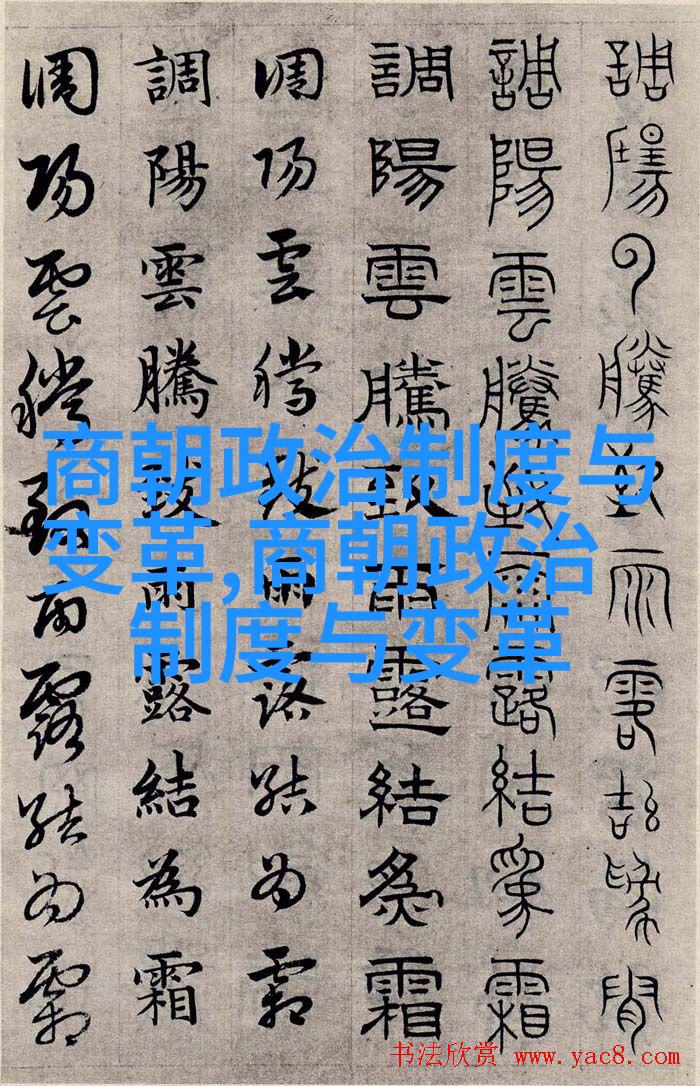 調陽雲騰致雨露結為霜
調陽雲騰致雨露結為霜
調陽雲騰致雨露結為霜
調陽雲騰致雨露結為霜
調陽雲騰致雨露結為霜
調陽雲騰致雨露結為霜
商朝政治制度与
变革,商朝政治
制度与变革
书法欣赏 www.yac8.com